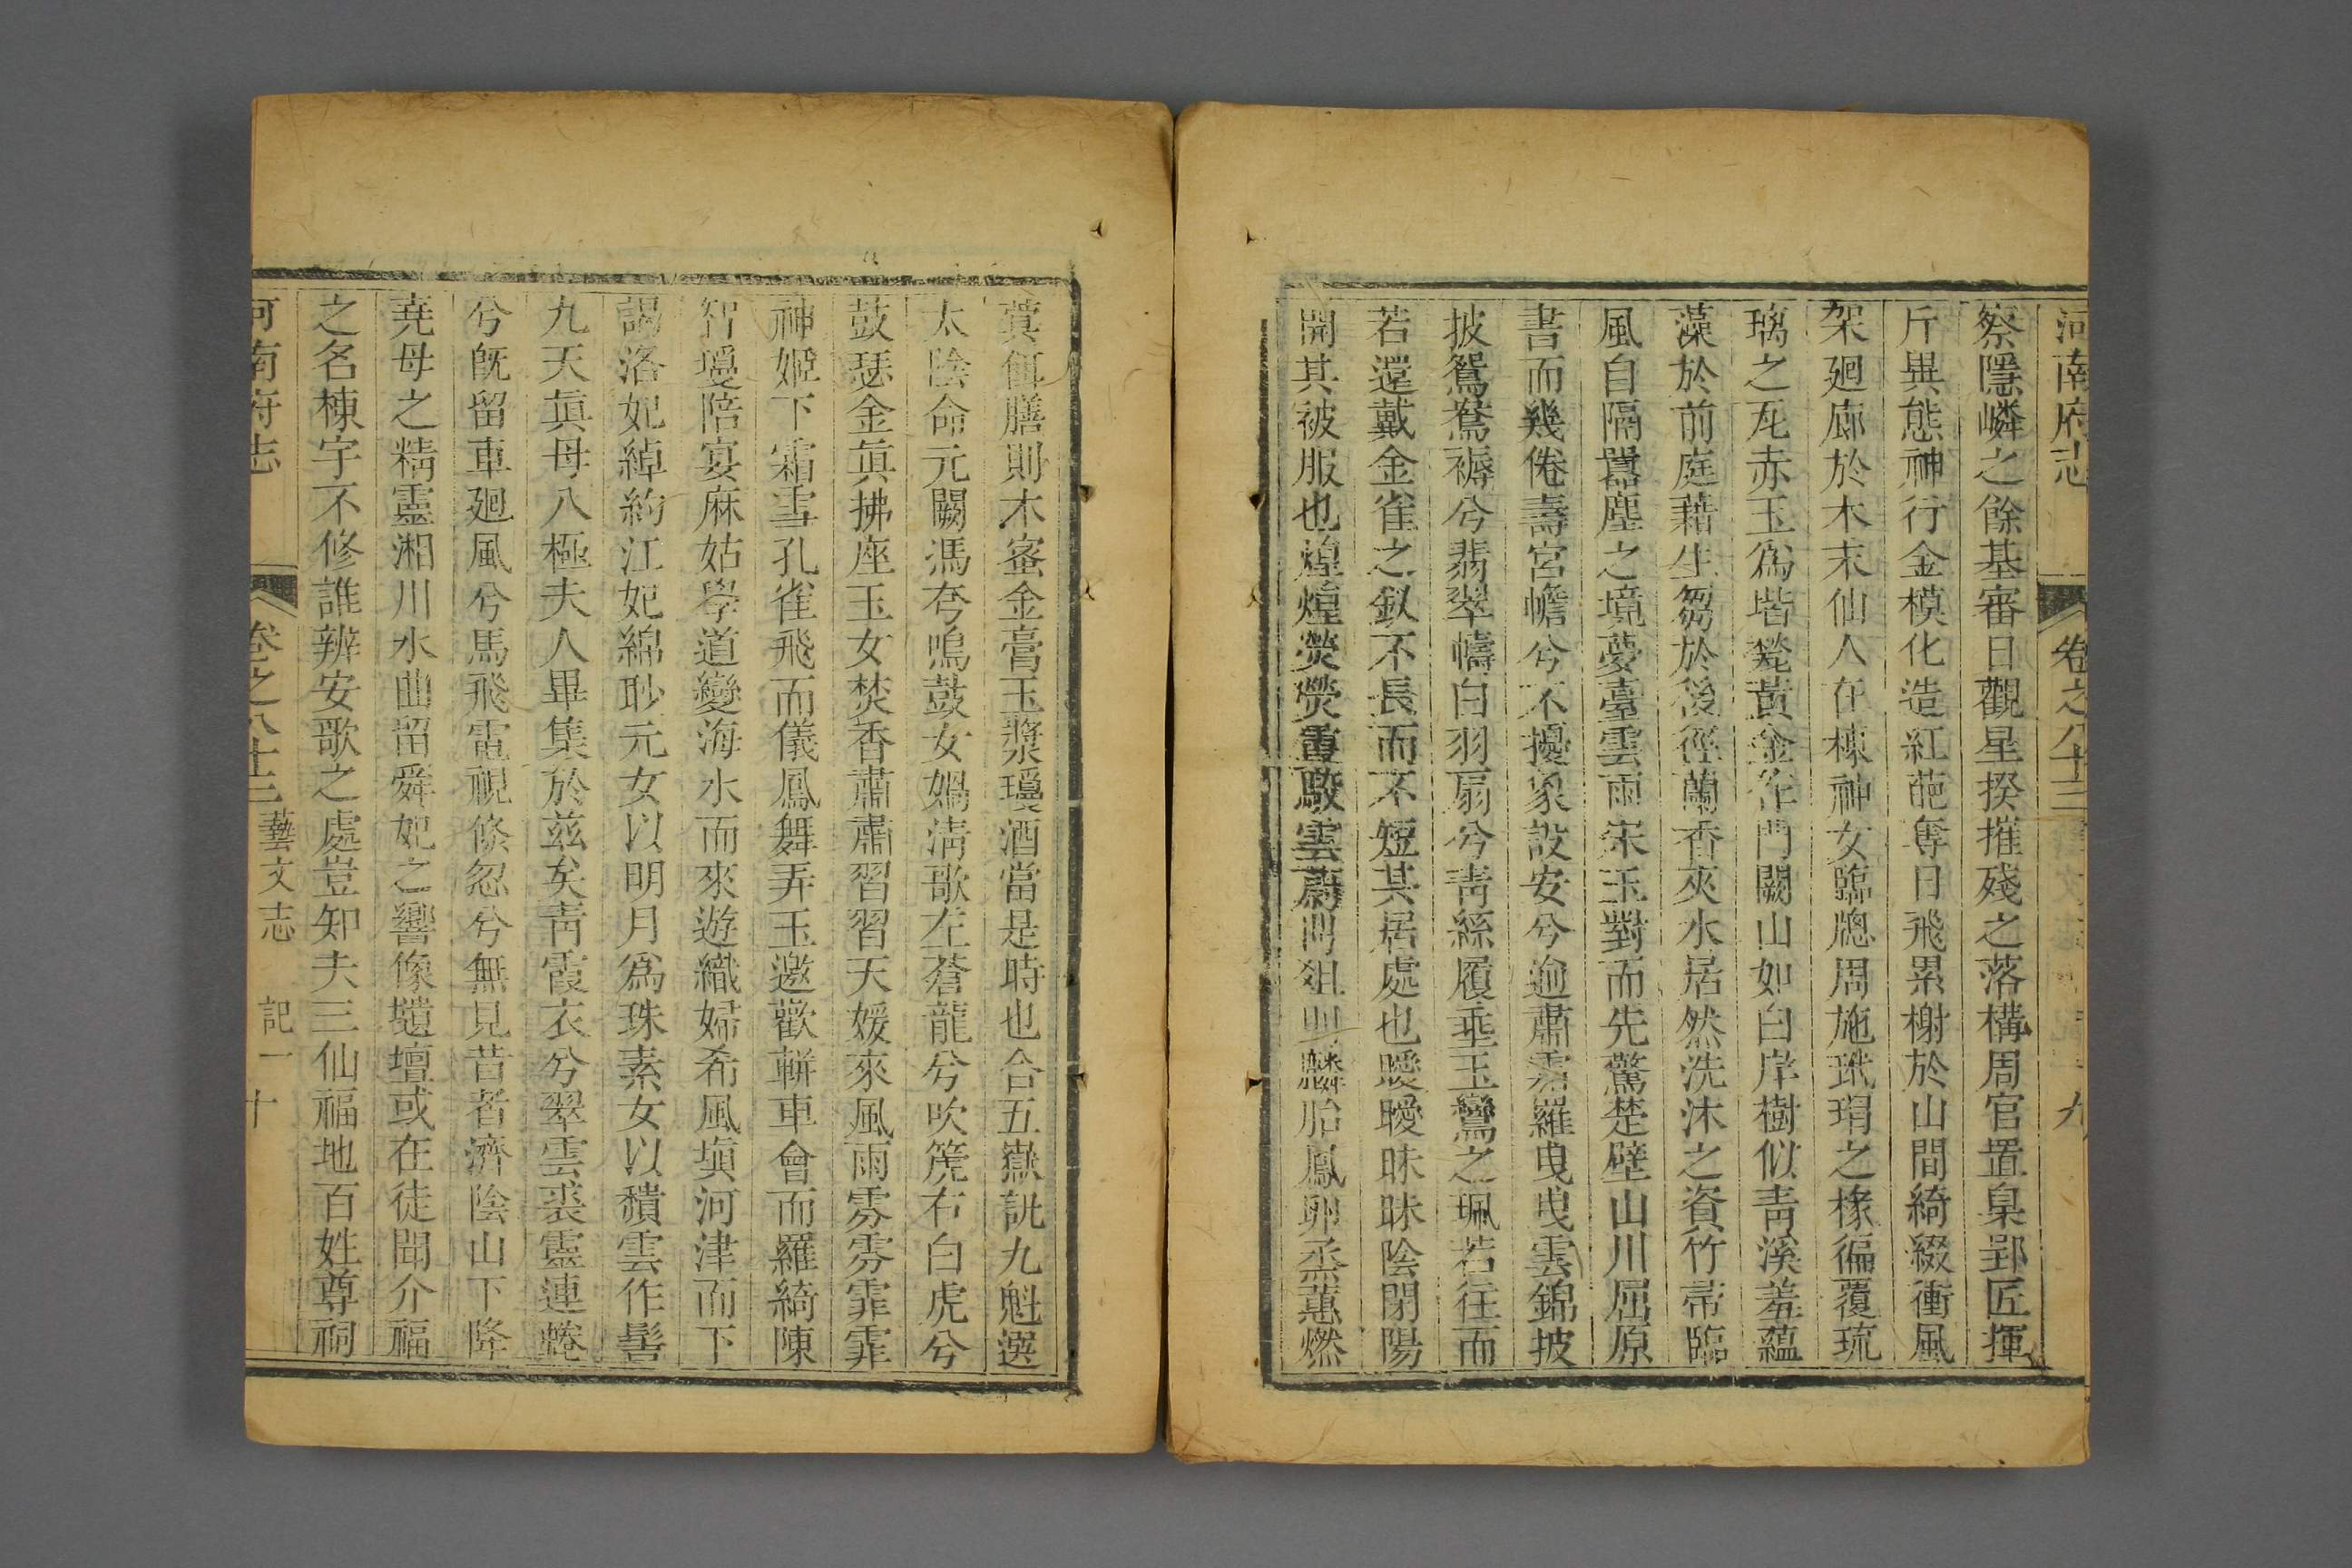 河南府志 卷之八十三 九
察隱嶙之餘基審日觀星揆摧殘之落構周官置臬郢匠揮
斤異態神行金模化造紅葩奪日飛累榭於山間綺綴衝風
架廻廊於木末仙人在棟神女臨牕周施玳瑁之椽徧覆琉
璃之瓦赤玉爲堦甃黃金作門闕山如白岸樹似靑溪羞蘊
藻於前庭藉生芻於後徑蘭香夾水居然洗沐之資竹帚臨
風自隔囂塵之境夢臺雲雨宋玉對而先驚楚壁山川屈原
書而幾倦壽宮幨兮不擾象設安兮逾肅霱羅曳曳雲錦披
披鴛鴦褥兮翡翠幬白羽扇兮靑絲履垂玉鸞之珮若往而
若還戴金雀之釵不長而不短其居處也曖曖昧昧陰閉陽
開其被服也煌煌熒熒重駿雲蔚閒俎則麟胎鳳卵烝蕙燃
蓂餌膳則木蜜金膏玉漿瓊酒當是時也合五嶽訛九魁選
太陰命元闕馮夸鳴鼓女媧淸歌左蒼龍兮吹箎右白虎兮
鼓瑟金眞拂座玉女焚香肅肅習習天媛來風雨雰雰霏霏
神姬下霜雪孔雀飛而儀鳳舞弄玉邀歡輧車會而羅綺陳
智瓊陪宴麻姑學道變海水而來遊織婦希風塡河津而下
謁洛妃綽約江妃綿眇元女以明月爲珠素女以積雲作髻
九天眞母八極夫人畢集於茲矣靑霞衣兮翠雲裘靈連蜷
兮旣留車廻風兮馬飛電視倏忽兮無見昔者濟陰山下降
堯母之精靈湘川水曲留舜妃之響像壝壇或在徒聞介福
之名棟宇不修誰辨安歌之處豈知夫三仙福地百姓尊祠
河南府志 卷之八十三 藝文志 記一 十